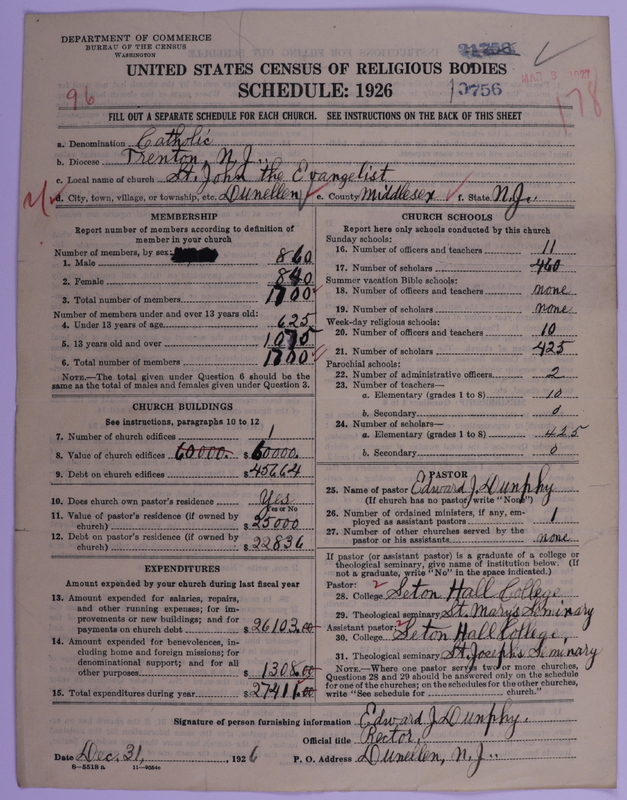 DEPARTMENT OF COMMERCE
BUREAU OF THE CENSUS
WASHINGTON
UNITED STATES CENSUS OF RELIGIOUS BODIES
SCHEDULE: 1926
96
10756
178
FILL OUT A SEPARATE SCHEDULE FOR EACH CHURCH. SEE INSTRUCTIONS ON THE BACK OF THIS SHEET
a. Denomination Catholic
b. Diocese Trenton, N. J.
c. Local name of church St. John the Evangelist
d. City, town, village, or township, etc. Dunellen e. County Middlesex f. State N.J.
MEMBERSHIP
Report number of members according to definition of
member in your church
Number of members, by sex:
1. Male 860
2. Female 840
3. Total number of members 1700
Number of members under and over 13 years old:
4. Under 13 years of age 625
5. 13 years old and over 1075
6. Total number of members 1700
NOTE.—The total given under Question 6 should be the
same as the total of males and females given under Question 3.
CHURCH BUILDINGS
See instructions, paragraphs 10 to 12
7. Number of church edifices 1
8. Value of church edifices 60000. $ 60000.
9. Debt on church edifices $ 45664
10. Does church own pastor's residence Yes
Yes or No
11. Value of pastor's residence (if owned by
church) $ 25000
12. Debt on pastor's residence (if owned by
church) $ 22836
EXPENDITURES
Amount expended by your church during last fiscal year
13. Amount expended for salaries, repairs,
and other running expenses; for im-
provements or new buildings; and for
payments on church debt $ 26103.00
14. Amount expended for benevolences, in-
cluding home and foreign missions; for
denominational support; and for all
other purposes $ 1308.00
15. Total expenditures during year $ 27411.00
CHURCH SCHOOLS
Report here only schools conducted by this church
Sunday schools:
16. Number of officers and teachers 11
17. Number of scholars 460
Summer vacation Bible schools:
18. Number of officers and teachers none
19. Number of scholars none
Week-day religious schools:
20. Number of officers and teachers 10
21. Number of scholars 425
Parochial schools:
22. Number of administrative officers 2
23. Number of teachers—
a. Elementary (grades 1 to 8) 10
b. Secondary 0
24. Number of scholars—
a. Elementary (grades 1 to 8) 425
b. Secondary 0
PASTOR
25. Name of pastor Edward J. Dunphy
(If church has no pastor, write "None")
26. Number of ordained ministers, if any, em-
ployed as assistant pastors 1
27. Number of other churches served by the
pastor or his assistants none
If pastor (or assistant pastor) is a graduate of a college or
theological seminary, give name of institution below. (If
not a graduate, write "No" in the space indicated.)
Pastor: 2
28. College Seton Hall College
29. Theological seminary St. Mary's Seminary
Assistant pastor: 2
30. College Seton Hall College,
31. Theological seminary St. Josephs Seminary
NOTE.—Where one pastor serves two or more churches,
Questions 28 and 29 should be answered only on the schedule
for one of the churches; on the schedules for the other churches,
write "See schedule for church."
Signature of person furnishing information Edward J. Dunphy.
Official title Rector,
Date Dec. 31, 1926 P. O. Address Dunellen, N. J.
8—5518 a 11—9054a